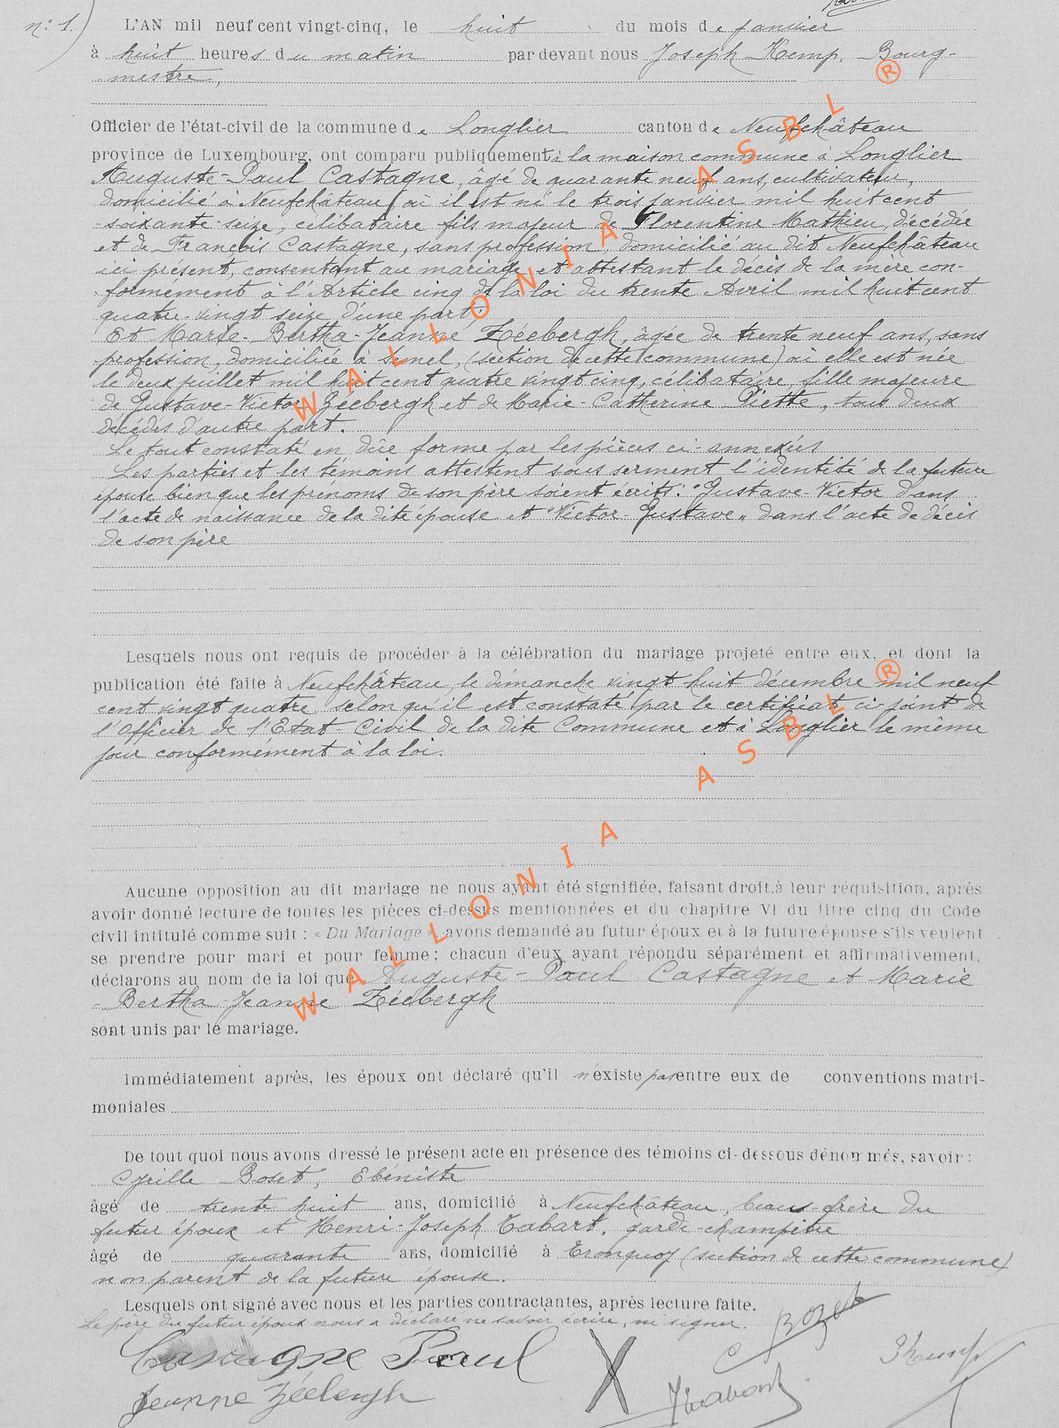 n: 1.
L'AN mil neuf cent vingt-cinq, le huit du mois de janvier
à huit heures du matin par devant nous Joseph Kemp, Bourg-
mestre,
Officier de l'état-civil de la commune de Longlier canton de Neufchâteau
province de Luxembourg, ont comparu publiquement à la maison commune à Longlier
Auguste-Paul Castagne, âgé de quarante neuf ans, cultivateur,
domicilié à Neufchâteau où il est né le trois janvier mil huit cent
soixante-seize, célibataire fils majeur de Florentine Mathieu, décédée
et de François Castagne, sans profession, domicilié au dit Neufchâteau
ici présent, consentant au mariage et attestant le décès de la mère con-
formément à l'Article cinq de la loi du trente Avril mil huit cent
quatre-vingt seize d'une part;
Et Marie-Bertha-Jeanne Zéebergh, âgée de trente neuf ans, sans
profession, domiciliée à (section de cette commune) où elle est née
le deux juillet mil huit cent quatre vingt cinq, célibataire, fille majeure
de Gustave-Victor Zéebergh et de Marie-Catherine Piette, tous deux
décédés d'autre part.
Le tout constaté en dûe forme par les pièces ci-annexées
Les parties et les témoins attestent sous serment l'identité de la future
épouse bien que les prénoms de son père soient écrits: "Gustave-Victor dans
l'acte de naissance de la dite épouse et "Victor-Gustave" dans l'acte de décès
de son père
Lesquels nous ont requis de procéder à la célébration du mariage projeté entre eux, et dont la
publication été faite à Neufchâteau, le dimanche vingt huit décembre mil neuf
cent vingt quatre selon qu'il est constaté par le certificat ci-joint de
l'Officier de l'Etat-Civil de la dite Commune et à Longlier le même
jour conformement à la loi.
Aucune opposition au dit mariage ne nous ayant été signifiée, faisant droit à leur réquisition, après
avoir donné lecture de toutes les pièces ci-dessus mentionnées et du chapitre VI du titre cinq du Code
civil intitulé comme suit : « Du Mariage », avons demandé au futur époux et à la future épouse s'ils veulent
se prendre pour mari et pour femme; chacun d'eux ayant répondu séparément et affirmativement,
déclarons au nom de la loi que Auguste-Paul Castagne et Marie
-Bertha-Jeanne Zéebergh
sont unis par le mariage.
Immédiatement après, les époux ont déclaré qu'il n'existe pas entre eux de conventions matri-
moniales
De tout quoi nous avons dressé le présent acte en présence des témoins ci-dessous dénommés, savoir:
Cyrille Boset, Ebéniste
âgé de trente huit ans, domicilié à Neufchâteau, beau-frère du
futur époux et Henri-Joseph Tabart, garde-champêtre
âgé de quarante ans, domicilié à Tronquoy (section de cette commune)
non parent de la future épouse.
Lesquels ont signé avec nous et les parties contractantes, après lecture faite.
Le père du futur époux nous a déclaré ne savoir écrire, ni signer.
Castagne Paul
Jeanne Zéebergh
JKemp
WALLONIA ASBL ®
WALLONIA ASBL ®